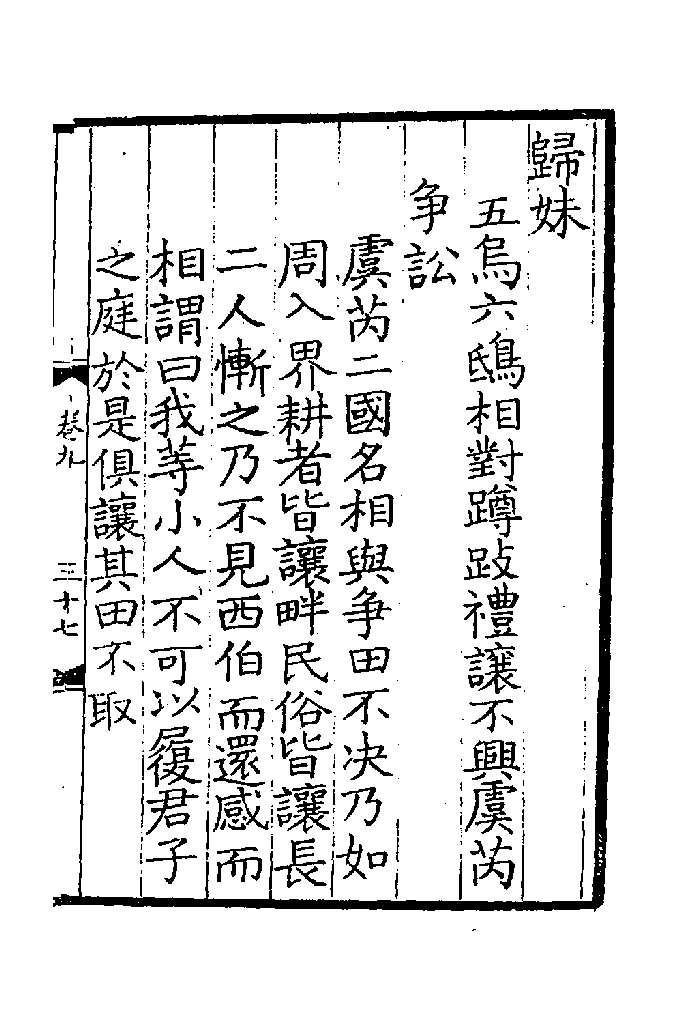 歸妹
五烏六鴟相對蹲跂禮讓不興虞芮
争訟
虞芮二國名相與争田不决乃如
周入界耕者皆讓畔民俗皆讓長
二人慚之乃不見西伯而還感而
相謂曰我等小人不可以履君子
之庭於是俱讓其田不取
卷九
三十七